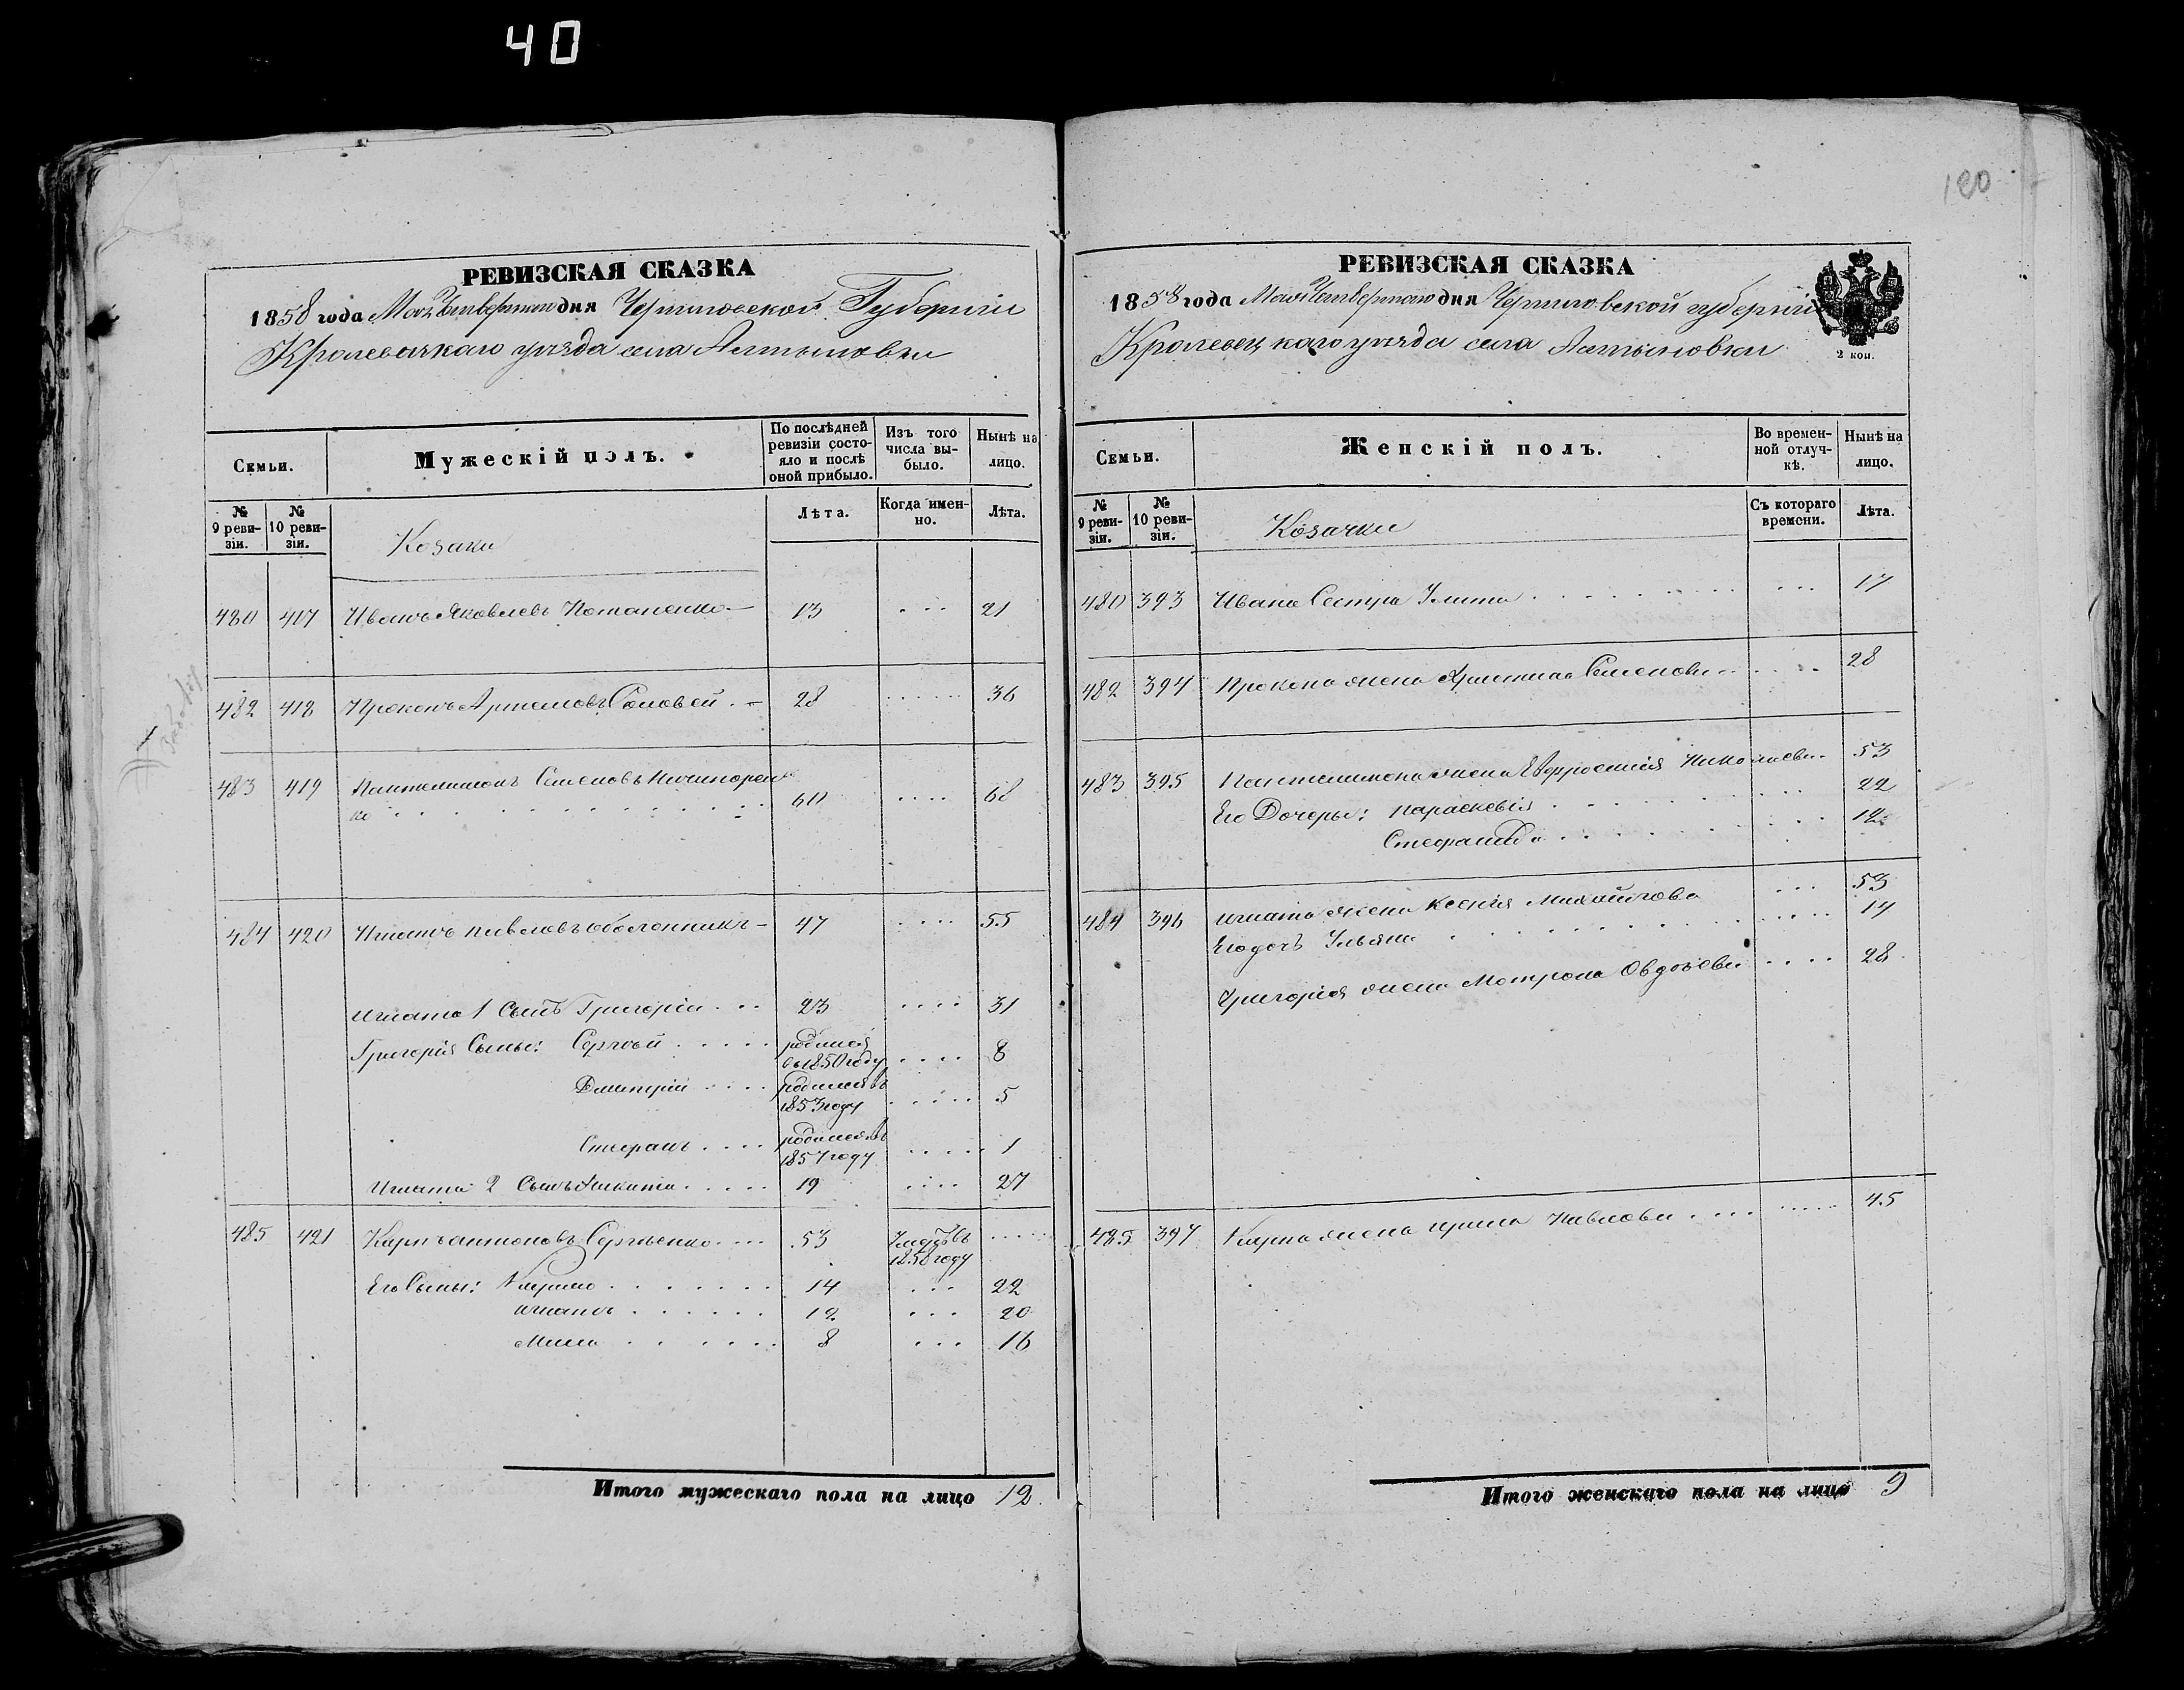 40
120
РЕВИЗСКАЯ СКАЗКА
1858 года Мая Четвертого дня Черниговской Губерніи
Кролевецкаго уѣзда села Алтыновки
Семьи.
Мужескій полъ.
По послѣдней ревизіи состояло и послѣ оной прибыло.
Изъ того числа выбыло.
Нынѣ на лицо.
№ 9 ревизіи.
№ 10 ревизіи.
Козаки
Лѣта.
Когда именно.
Лѣта.
480 417 Иванъ Яковлевъ Потапенко 13 ... 21
482 418 Прокопъ Артемовъ Соловей 28 ...... 36
483 419 Пантелимонъ Семеновъ Ничипорен
ко 60 .... 68
484 420 Игнатъ Павловъ Оболонникъ 47 .... 55
Игната 1 Сынъ Григорій 23 .... 31
Григорія Сыны: Сергѣй родился въ 1850 году .... 8
Дмитрій родился въ 1853 году ..... 5
Стефанъ родился въ 1857 году ..... 1
Игната 2 Сынъ Никита 19 .... 27
485 421 Карпъ Антоновъ Сергѣенко 53 Умеръ въ 1850 году .....
Его Сыны: 14 ... 22
Игнатъ 12 ... 20
8 ... 16
Итого мужескаго пола на лицо 12
РЕВИЗСКАЯ СКАЗКА
1858 года Мая Четвертого дня Черниговской губерніи
Кролевецкаго уѣзда села Алтыновки
2 коп.
Семьи.
Женскій полъ.
Во временной отлучкѣ.
Нынѣ на лицо.
№ 9 ревизіи.
№ 10 ревизіи.
Козачки
Съ котораго времени.
Лѣта.
480 393 Ивана Сестра Улита ... 17
482 394 Прокопа жена Христина Семенова .... 28
483 395 Пантелимона жена Евфросинія Николаева 53
Его Дочеры: Параскевія ... 22
Стефанида ... 12
484 396 Игната жена Ксенія Михайлова ... 53
Его дочь Ульяна ..... 14
Григорія жена Мотрона Овдѣева .... 28
485 397 Карпа жена Ирина Павлова ..... 45
Итого женскаго пола на лицо 9